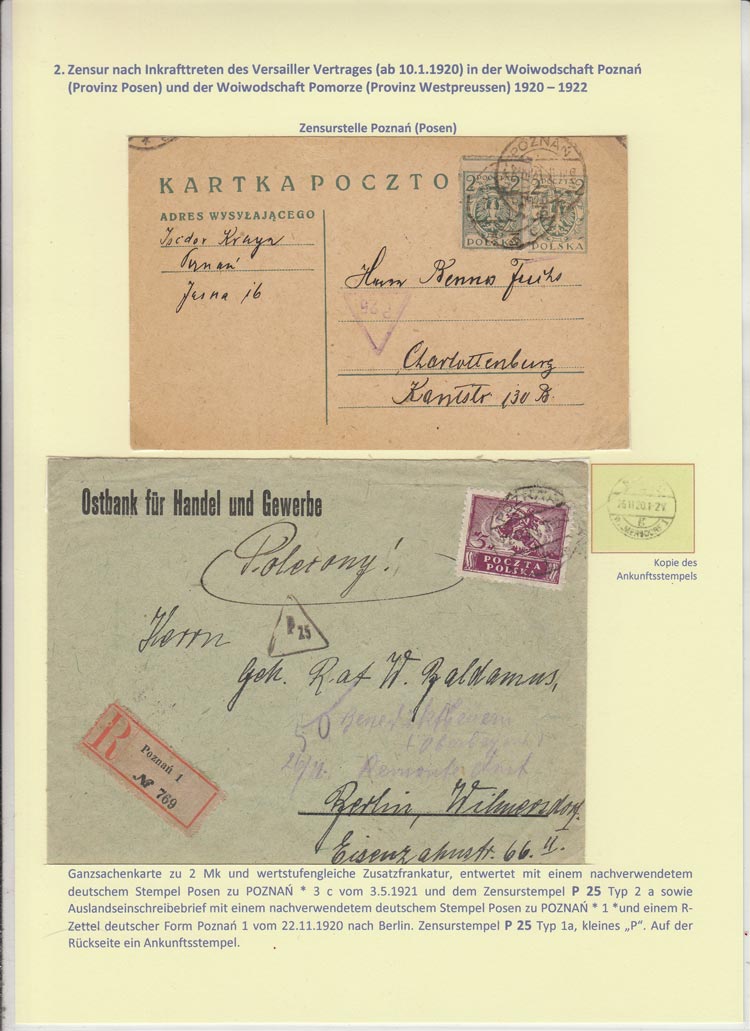 2. Zensur nach Inkrafttreten des Versailler Vertrages (ab 10.1.1920) in der Woiwodschaft Poznań
(Provinz Posen) und der Woiwodschaft Pomorze (Provinz Westpreussen) 1920 – 1922
Zensurstelle Poznań (Posen)
KARTKA POCZTO
ADRES WYSYŁAJĄCEGO
Isidor Kraya
Poznań
Jasna 16
POZNAŃ
2 2
2 2
POLSKA
POLSKA
Herrn Benno Fuchs
Charlottenburg
Kantstr 130 B.
Ostbank für Handel und Gewerbe
5
POCZTA
POLSKA
Polecony!
P 25
Herrn
Geh. Rat W. Baldamus,
50
Benediktbeuern
Remonte
R
Poznań 1
№ 769
Berlin, Wilmersdorf.
Eisenzahnstr. 66. II.
Kopie des
Ankunftsstempels
Ganzsachenkarte zu 2 Mk und wertstufengleiche Zusatzfrankatur, entwertet mit einem nachverwendetem
deutschem Stempel Posen zu POZNAŃ * 3 c vom 3.5.1921 und dem Zensurstempel P 25 Typ 2 a sowie
Auslandseinschreibebrief mit einem nachverwendetem deutschem Stempel Posen zu POZNAŃ * 1 *und einem R-
Zettel deutscher Form Poznań 1 vom 22.11.1920 nach Berlin. Zensurstempel P 25 Typ 1a, kleines „P“. Auf der
Rückseite ein Ankunftsstempel.